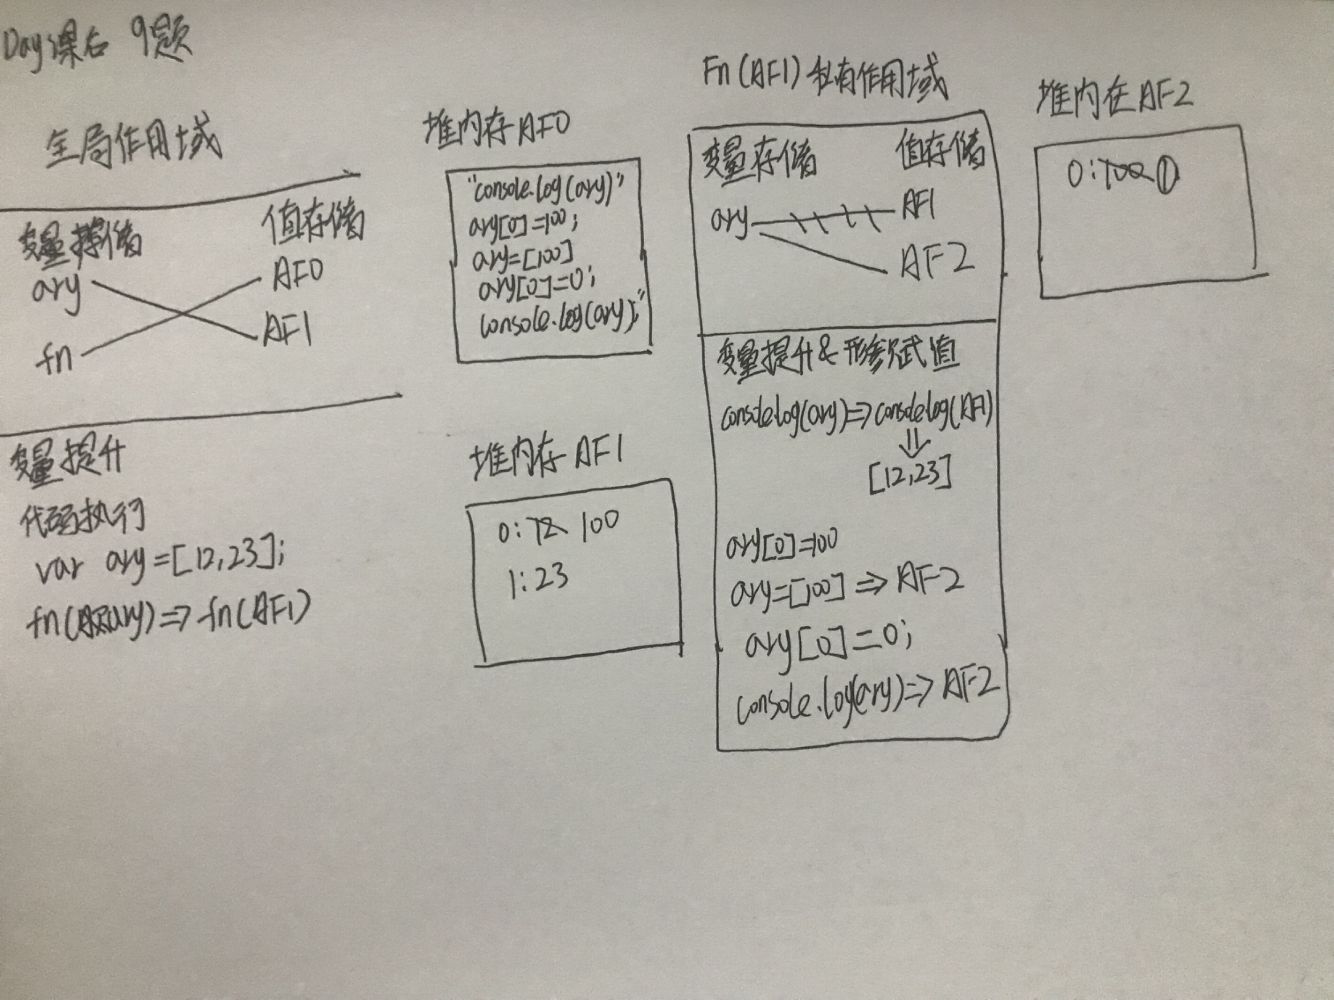 Day课后 9题
全局作用域
变量存储 值存储
ary AF0
fn AF1
变量提升
代码执行
var ary=[12,23];
fn(ary)=>fn(AF1)
堆内存AF0
"console.log(ary)"
ary[0]=100;
ary=[100]
ary[0]=0;
console.log(ary);"
堆内存AF1
0:12 100
1:23
Fn(AF1)私有作用域
变量存储 值存储
ary AF1
AF2
变量提升&形参赋值
console.log(ary)=>console.log(AF1)
[12,23]
ary[0]=100
ary=[100]=>AF2
ary[0]=0;
console.log(ary)=>AF2
堆内在AF2
0:100